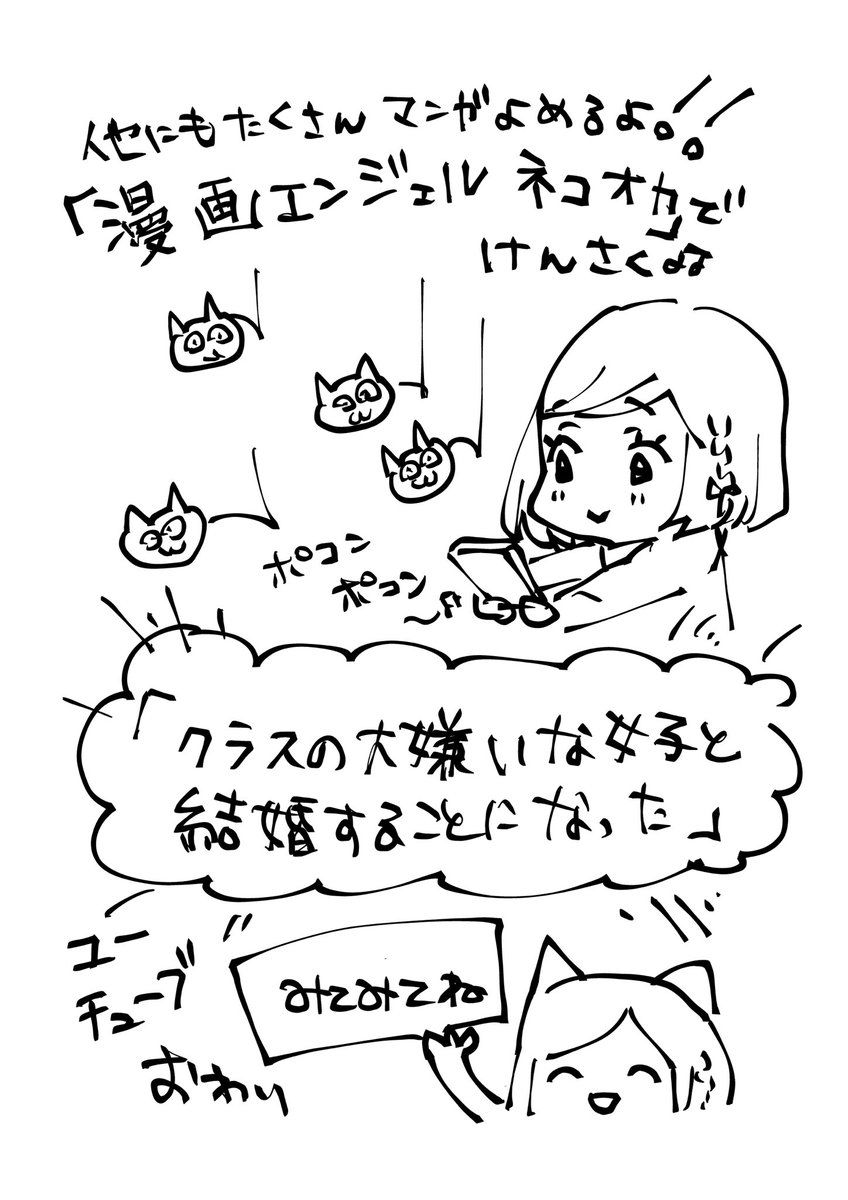 他にもたくさんマンガよめるよ。。
「漫画エンジェルネコオカ」で
けんさくね
ポコン
ポコン
「クラスの大嫌いな女子と
結婚することになった」
ユー
チューブ
みてみてね
おわり